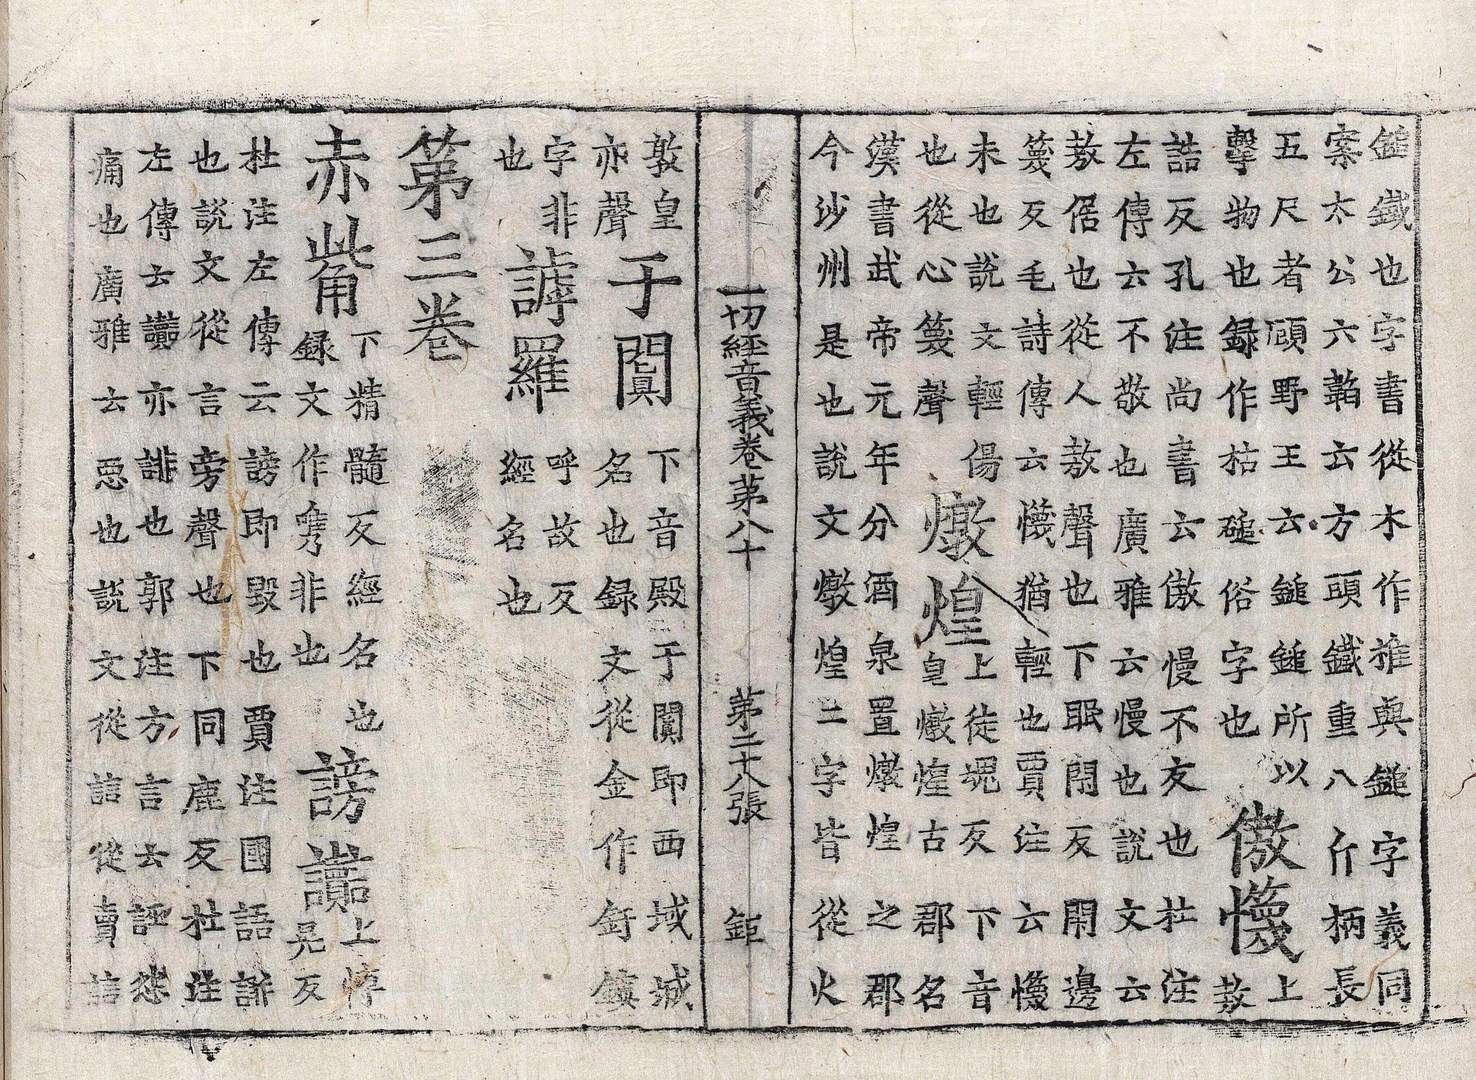 鎚鐵也字書從木作搥與鎚字義同
案太公六韜云方頭鐵重八斤柄長
五尺者顧野王云鎚鎚所以
擊物也録作枯磓俗字也
傲懱
上
敖
誥反孔注尚書云傲慢不友也杜注
左傳云不敬也廣雅云慢也說文云
敖倨也從人敖聲也下眠閇反閇邊
篾反毛詩傳云懱猶輕也賈注云懱
未也說文輕傷
也從心篾聲
燉煌
上徒魂反下音
皇燉煌古郡名
漢書武帝元年分酒泉置燉煌之郡
今沙州是也說文燉煌二字皆從火
一切經音義卷第八十 第二十八張 鉅
敦皇
亦聲
于闐
下音殿于闐即西域城
名也録文從金作釪鎮
字非
也
謼羅
呼故反
經名也
第三卷
赤觜
下精髓反經名也
録文作觜非也
謗讟
上愽
晃反
杜注左傳云謗即毀也賈注國語訴
也說文從言旁聲也下同鹿反杜注
左傳云讟亦誹也郭注方言云誣𠍴
痛也廣雅云惡也說文從誩從賣誩